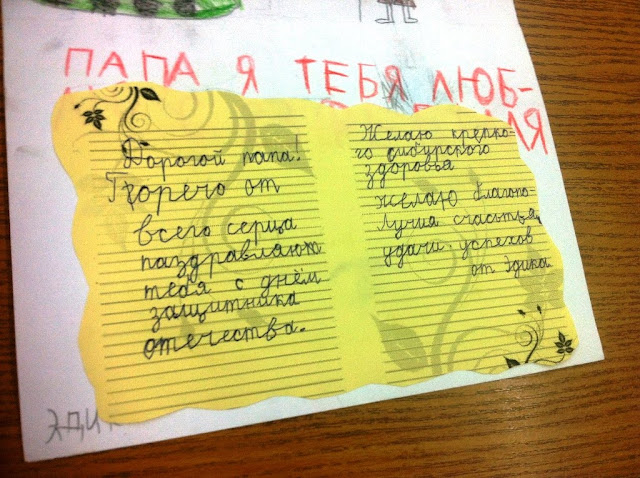 ПАПА Я ТЕБЯ ЛЮБ-
Дорогой папа!
Горечо от
всего серца
паздравляю
тебя с днём
защитника
отечества.
Желаю крепко-
го сибурского
здоровья
желаю благопо-
лучия счастья,
удачи. успехов
от Эдика
ЭДИК